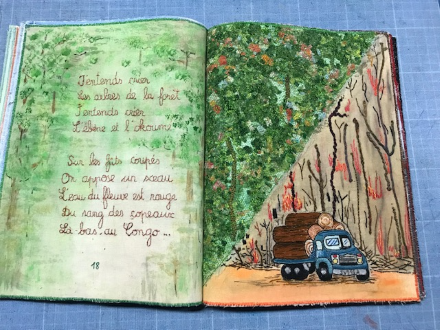 J'entends crier
Les arbres de la forêt
J'entends crier
L'ébène et l'okoumé
Sur les fûts coupés
On appose un sceau
L'eau du fleuve est rouge
Du sang des copeaux
Là bas au Congo ...
18